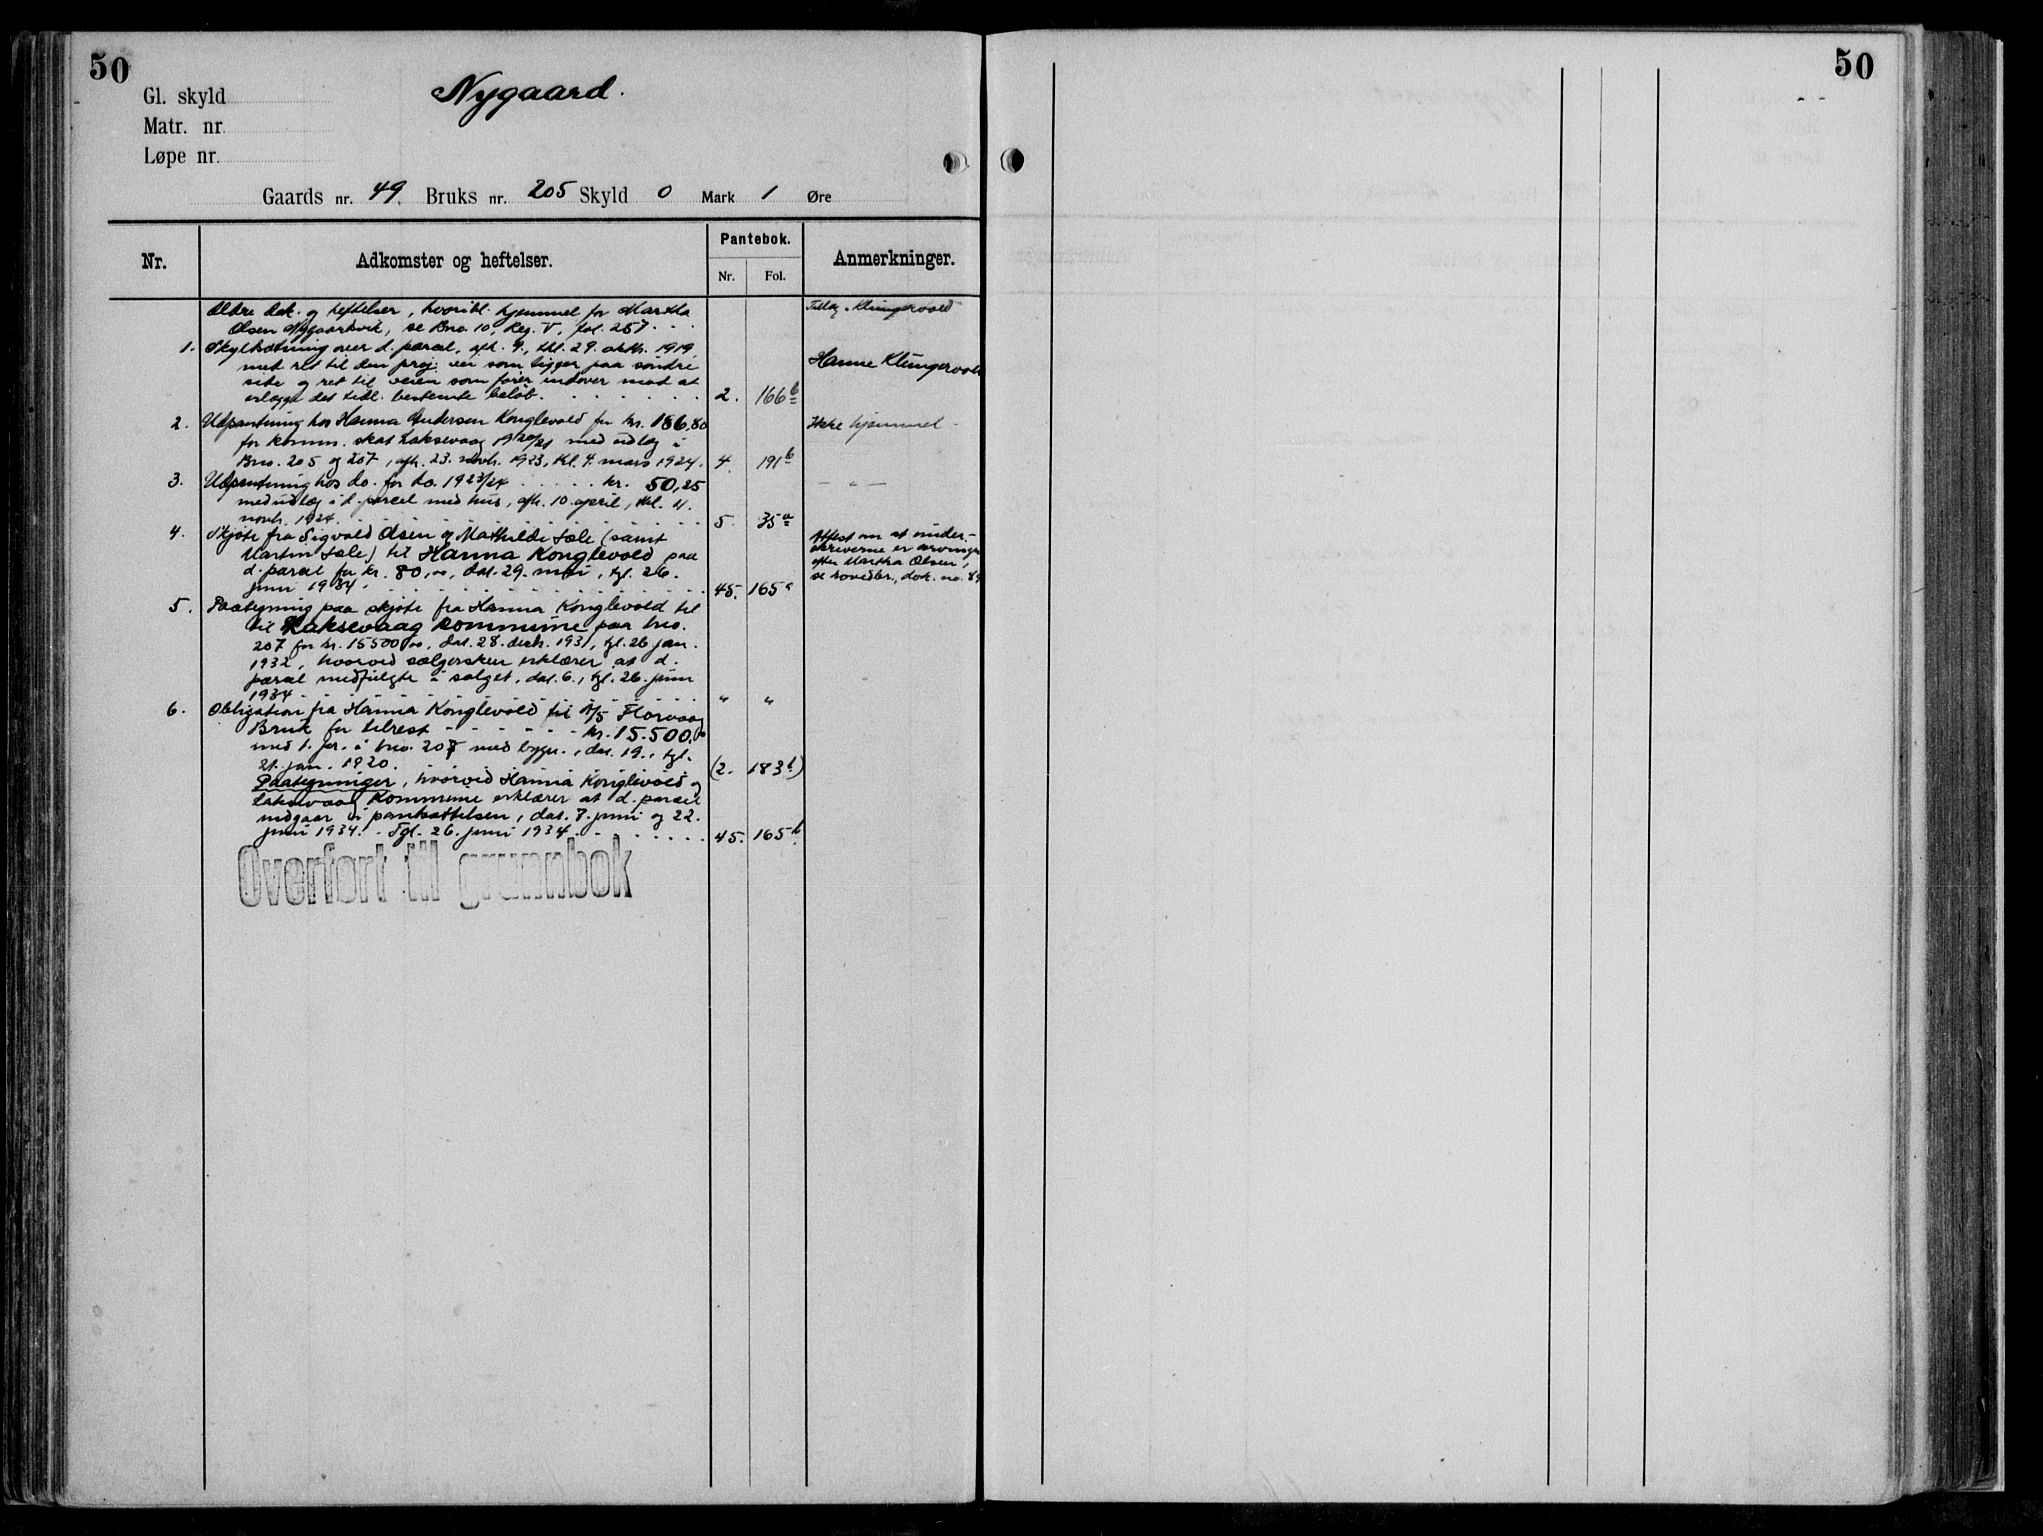 50
50
Nygaard.
Gl. skyld
Matr. nr.
Løpe nr.
Gaards nr. 49. Bruks nr. 205 Skyld 0 Mark 1 Øre
Nr.
Adkomster og heftelser.
Pantebok.
Nr. Fol.
Anmerkninger.
Ældre dok. og heftelser, hvoribl. hjemmel for Martha
Olsen Nygaardsvik, se Bno. 10, Reg. V, fol. 257.
Klungervold
1. Skyldsætning over d. parcel, afh. 9., thl. 29. oktbr. 1919,
med ret til den proj. vei som ligger paa søndre
side og ret til veien som fører indover mod at
erlægge det tidl. bestemte beløb. 2. 166 b
Hanne Klungervold
2. Udpantning hos Hanna Andersen Konglevold for kr. 186,80
for komm. skat Laksevaag 1920/21 med udlæg i
Bno. 205 og 207, afh. 23. novbr. 1923, thl. 4. mars 1924. 4. 191 b
Ikke hjemmel
3. Udpantning hos do. for do. 1923/24 kr. 50,25
med udlæg i d. parcel med hus, afh. 10. april, thl. 11.
novbr. 1924. 5. 35 a
- " -
4. Skjøte fra Sigvald Olsen og Mathilde Sæle (samt
Martin Sæle) til Hanna Konglevold paa
d. parcel for kr. 80,00, dat. 29. mai, tgl. 26.
juni 1934. 45. 165 a
Attest om at under-
skriverne er arvinger
efter Martha Olsen,
se hovedbr., dok. no. 89
5. Paategning paa skjøte fra Hanna Konglevold til
til Laksevaag kommune paa bno.
207 for kr. 15500,00, dat. 28. decbr. 1931, tgl. 26 jan.
1932, hvorved sælgersken erklærer at d.
parcel medfulgte i salget, dat. 6., tgl. 26. juni
1934 " "
6. Obligation fra Hanna Konglevold til A/S Florvaag
Bruk for tilrest kr. 15.500,00
med 1. pr. i bno. 207 med bygn., dat. 19., tgl.
21. jan. 1920. (2. 183 b)
Paategninger, hvorved Hanna Konglevold og
Laksevaag Kommune erklærer at d. parcel
indgaar i panthæftelsen, dat. 7. juni og 22.
juni 1934. - Tgl. 26. juni 1934. 45. 165 b
Overført til grunnbok